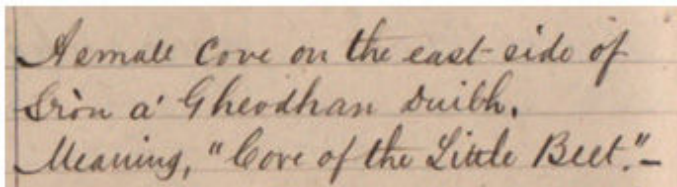 A small Cove on the east side of
Sròn a' Gheodhan Duibh.
Meaning, "Cove of the Little Beet."–